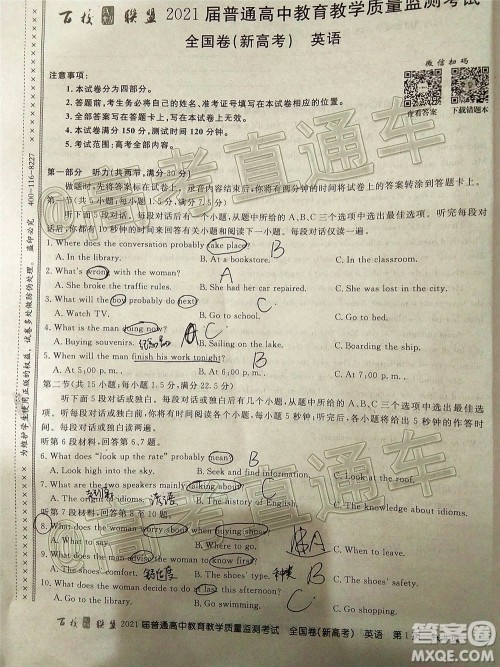 百校联盟 2021届普通高中教育教学质量监测考试
全国卷(新高考) 英语
微信扫码
查看答案 下载错题本
注意事项:
1.本试卷分为四部分。
2.答题前,考生务必将自己的姓名、准考证号填写在本试卷相应的位置。
3.全部答案写在答题卡上,写在本试卷上无效。
4.本试卷满分150分,测试时间120分钟。
5.考试范围:高考全部内容。
第一部分 听力(共两节,满分30分)
做题时,先将答案标在试卷上。录音内容结束后,你将有两分钟的时间将试卷上的答案转涂到答题卡上。
第一节(共5小题;每小题1.5分,满分7.5分)
听下面5段对话。每段对话后有一个小题,从题中所给的A、B、C三个选项中选出最佳选项。听完每段对话后,你都有10秒钟的时间来回答有关小题和阅读下一小题。每段对话仅读一遍。
1. Where does the conversation probably take place? B
A. In the library. B. At a bookstore. C. In the classroom.
2. What's wrong with the woman? A
A. She broke the traffic rules. B. She had her car repaired. C. She was stopped by the
3. What will the boy probably do next? C.
A. Watch TV. B. Go to school. C. Go to bed.
4. What is the man doing now? C.
A. Buying souvenirs. B. Sailing on the lake. C. Boarding the ship.
5. When will the man finish his work tonight? B
A. At 5:00 p. m. B. At 6:00 p. m. C. At 7:00 p. m.
第二节(共15小题;每小题1.5分,满分22.5分)
听下面5段对话或独白。每段对话或独白后有几个小题,从题中所给的A、B、C三个选项中选出最佳选项。听每段对话或独白前,你将有时间阅读各个小题,每小题5秒钟;听完后,各小题将给出5秒钟的作答时间。每段对话或独白读两遍。
听第6段材料,回答第6、7题。
6. What does "look up the rate" probably mean? B
A. Look high into the sky. B. Seek and find information. C. Look at the roof.
7. What are the two speakers mainly talking about? C
A. The origin of idioms. B. The history of English. C. English idioms.
听第7段材料,回答第8至10题。
8. What does the woman worry about when buying shoes? A
A. What to say. B. Where to go. C. When to leave.
9. What does the man advise the woman to know first? C
A. The shoes' comfort. B. The shoes' type. 种类 C. The shoes'
10. What does the woman decide to do at last? B
A. Go to the small stores. B. Go to the supermarket. C. Go to the
百校联盟 2021届普通高中教育教学质量监测考试 全国卷(新高考) 英语 第1
为维护学生使用正版的权益,试卷多处做防伪处理。 盗印必究 400-116-8227
高考直通车
高考直通车
答案圈